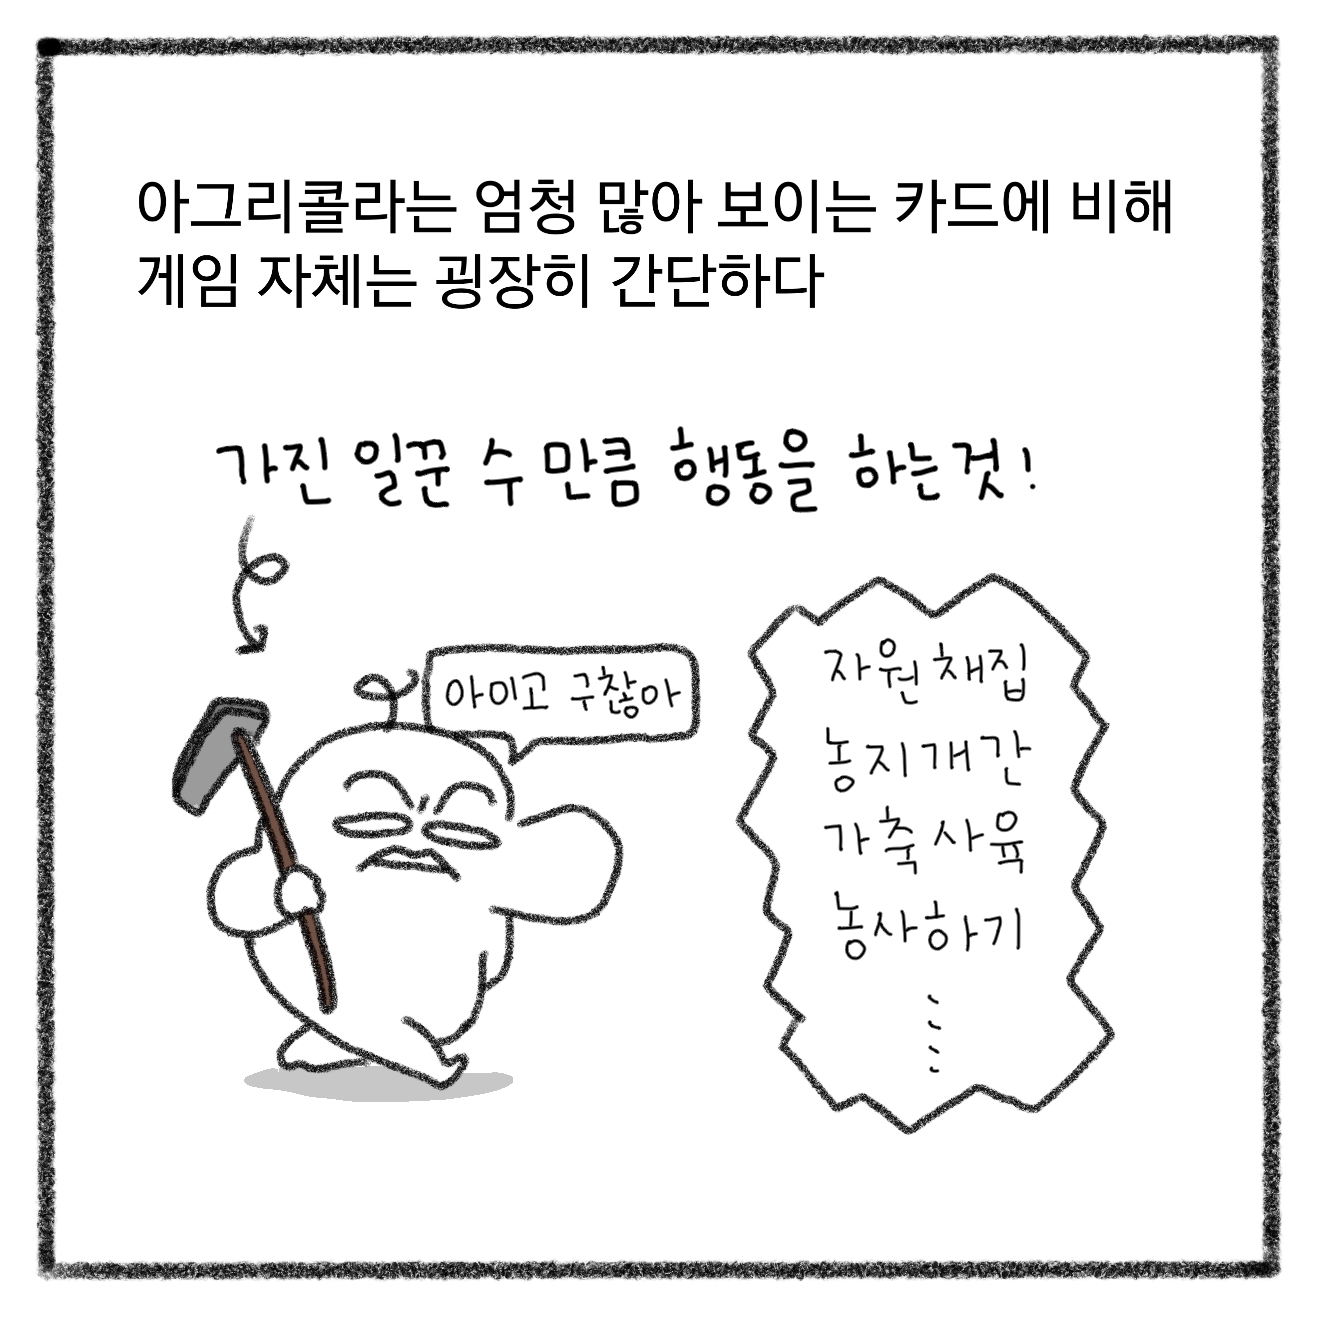 아그리콜라는 엄청 많아 보이는 카드에 비해
게임 자체는 굉장히 간단하다
가진 일꾼 수 만큼 행동을 하는것!
아이고 구찮아
자원채집
농지개간
가축사육
농사하기